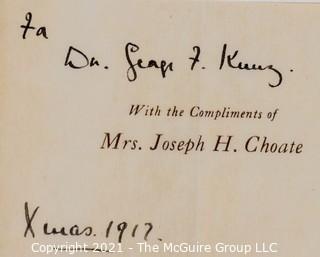 To
Dr. George F. Kunz.
With the Compliments of
Mrs. Joseph H. Choate
Xmas. 1917.
Copyright 2021 - The McGuire Group LLC